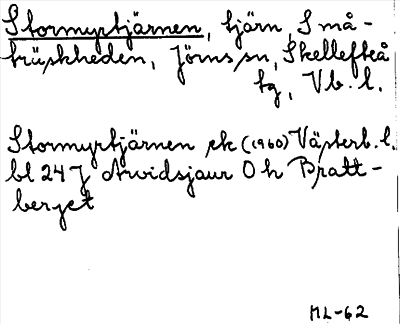 Stormyrtjärnen, tjärn, Små-
träskheden, Jörns sn, Skellefteå
tg, Vb. l.
Stormyrtjärnen ek (1960) Västerb. l.
bl 24 J Arvidsjaur 0 h Bratt-
berget
ML-62